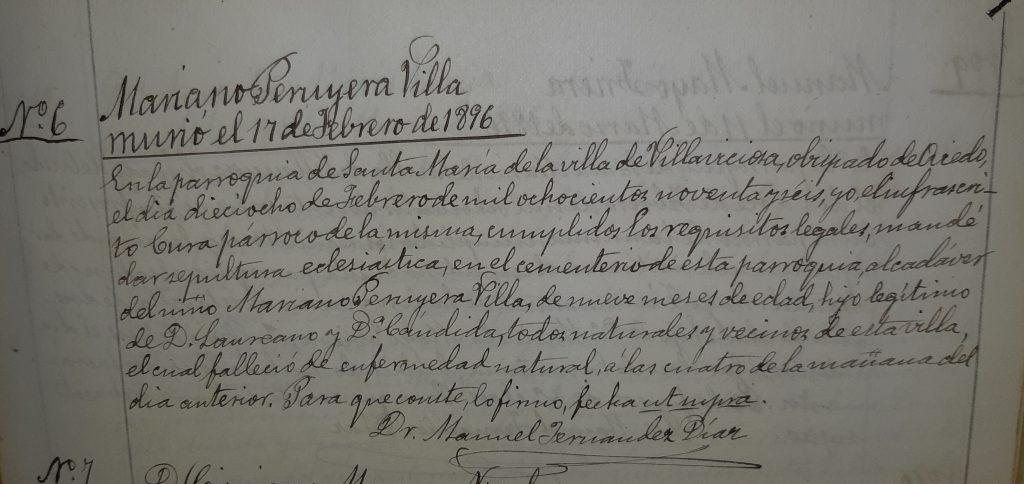 Nº 6
Mariano Peruyera Villa
murió el 17 de Febrero de 1896
En la parroquia de Santa María de la villa de Villaviciosa, obispado de Oviedo,
el dia dieciocho de Febrero de mil ochocientos noventa y séis, yo, el infrascri-
to Cura párroco de la misma, cumplidos los requisitos legales, mandé
dar sepultura eclesiástica, en el cementerio de esta parroquia, al cadáver
del niño Mariano Peruyera Villa, de nueve meses de edad, hijo legítimo
de D. Laureano y Dª Cándida, todos naturales y vecinos de esta villa,
el cual falleció de enfermedad natural, á las cuatro de la mañana del
dia anterior. Para que conste, lo firmo, fecha ut supra.
Dr. Manuel Fernandez Díaz
Nº 7